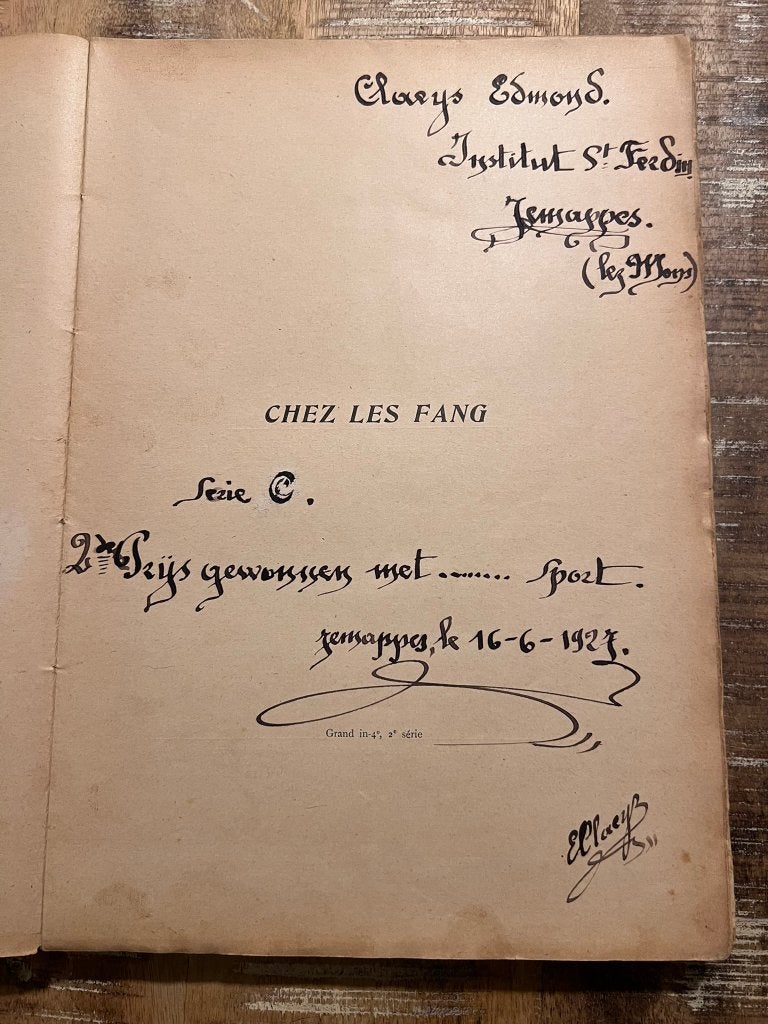 Claeys Edmond.
Institut St Ferdin
Jemappes.
(lez Mons)
CHEZ LES FANG
Serie C.
2de Prijs gewonnen met ........ sport.
Jemappes, le 16-6-1927.
Grand in-4°, 2e série
EClaeys